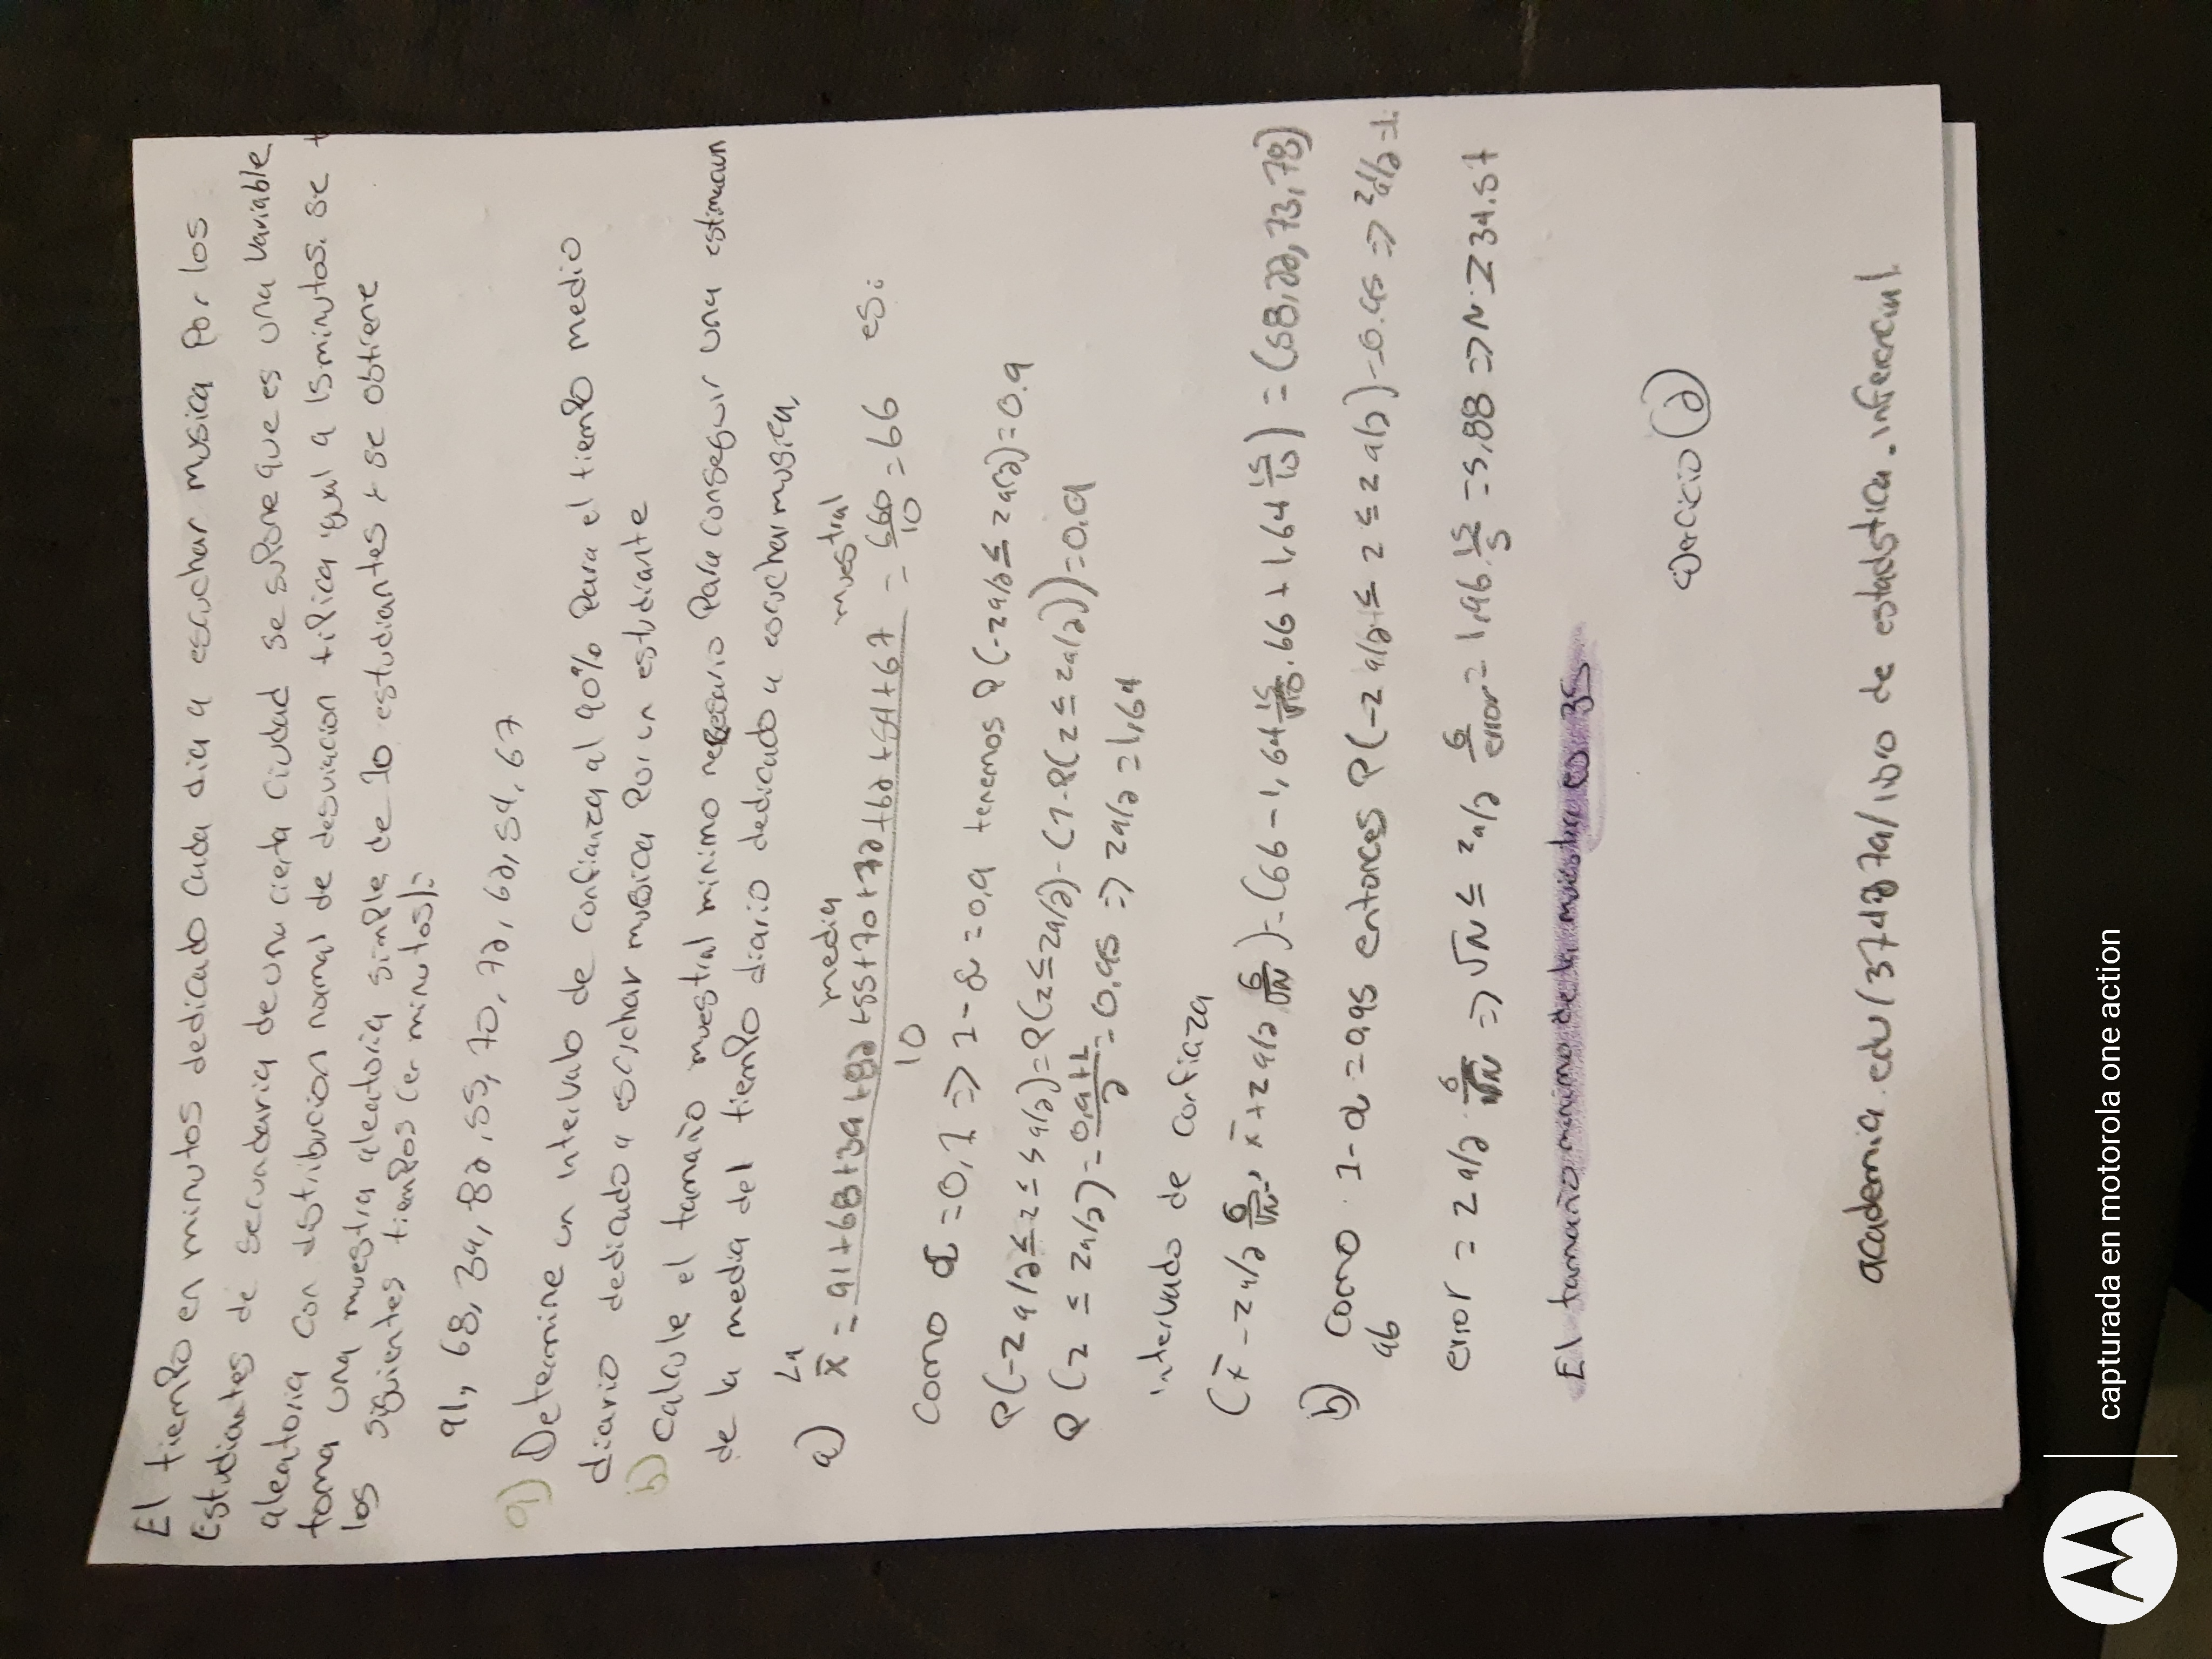 El tiempo en minutos dedicado cada dia a escuchar musica por los
Estudiantes de secundaria de una cierta ciudad se supone que es una variable
aleatoria con distribucion normal de desviacion tipica igual a 15 minutos. se t
toma una muestra aleatoria simple de 10 estudiantes y se obtiene
los siguientes tiempos (en minutos):
91, 68, 39, 82, 55, 70, 72, 62, 54, 67
a) Determine un intervalo de confianza al 90% para el tiempo medio
diario dedicado a escuchar musica por un estudiante
b) calcule el tamaño muestral minimo necesario para conseguir una estimacion
de la media del tiempo diario dedicado a escuchar musica,
a) La media muestral es:
x̄ = 91+68+39+82+55+70+72+62+54+67 / 10 = 660/10 = 66
como α = 0,1 => 1-α = 0,9 tenemos P(-z a/2 ≤ z a/2) = 0.9
P(-z a/2 ≤ z ≤ z a/2) = P(z ≤ z a/2) - (1-P(z ≤ z a/2)) = 0.9
P(z ≤ z a/2) = 0,9+1 / 2 = 0,95 => z a/2 = 1,64
intervado de confiaza
(x̄ - z a/2 σ/√N, x̄ + z a/2 σ/√N) = (66 - 1,64 15/√10, 66 + 1,64 15/10) = (58,22, 73,78)
b) como 1-α = 0,95 entonces P(-z a/2 ≤ z ≤ z a/2) = 0.95 => z a/2 = 1.
96
error = z a/2 σ/√N => √N ≤ z a/2 σ/error = 1,96 15/5 = 5,88 => N ≥ 34.57
El tamaño minimo de la muestra es 35
ejercicio 2
academia.edu / libro de estadstica.inferencial
capturada en motorola one action